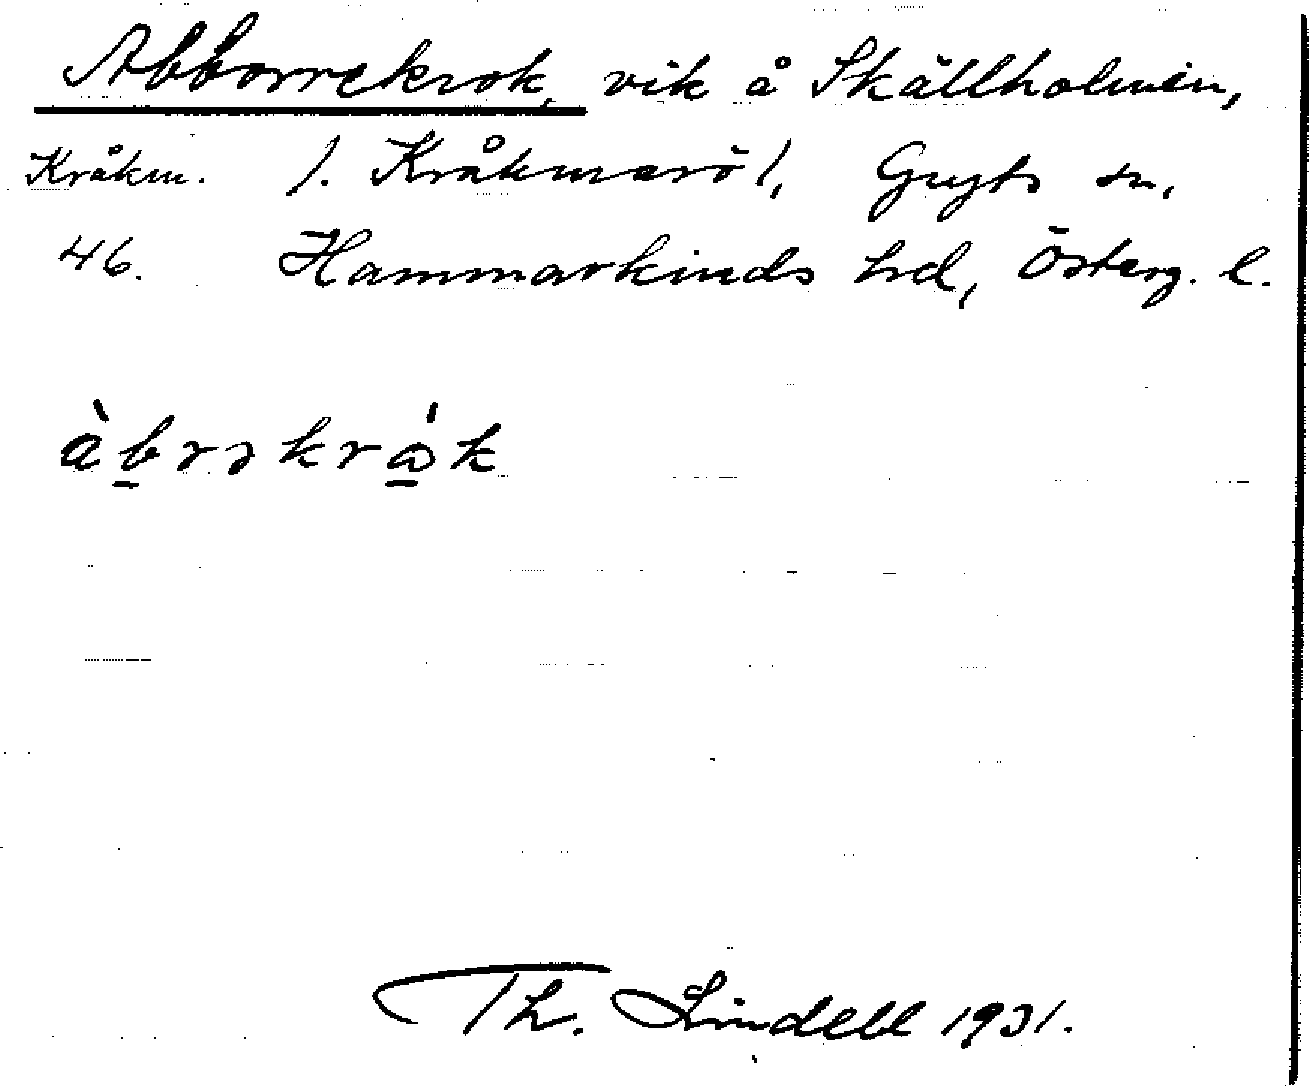 Abborrekrok, vik å Skällholmen,
Kråkm. /. Kråkmarö /, Gryts sn,
46. Hammarkinds hd, Österg. l.
àbrəkrωk
Th. Lindell 1931.